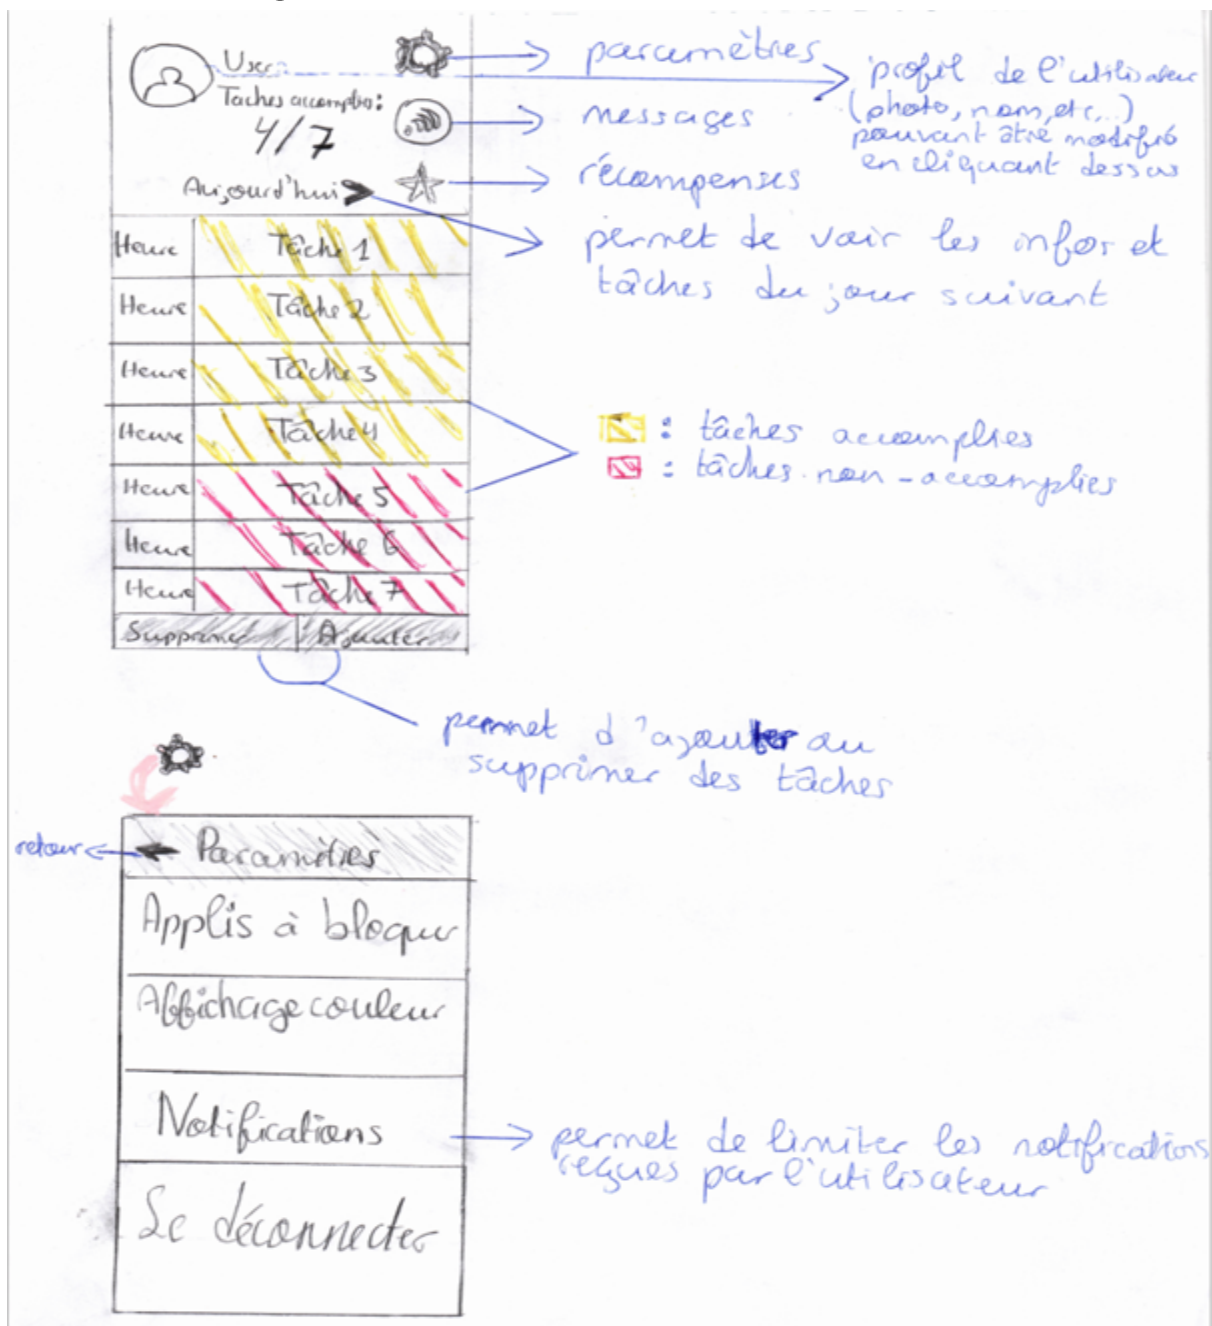 User
Taches accomplies:
4/7
Aujourd'hui
paramètres
messages
récompenses
profil de l'utilisateur
(photo, nom, etc...)
pouvant être modifié
en cliquant dessus
permet de voir les infos et
tâches du jour suivant
Heure Tâche 1
Heure Tâche 2
Heure Tâche 3
Heure Tâche 4
Heure Tâche 5
Heure Tâche 6
Heure Tâche 7
Supprimer Ajouter
: tâches accomplies
: tâches non-accomplies
permet d'ajouter ou
supprimer des tâches
retour
Paramètres
Applis à bloquer
Affichage couleur
Notifications
Se déconnecter
permet de limiter les notifications
reçues par l'utilisateur